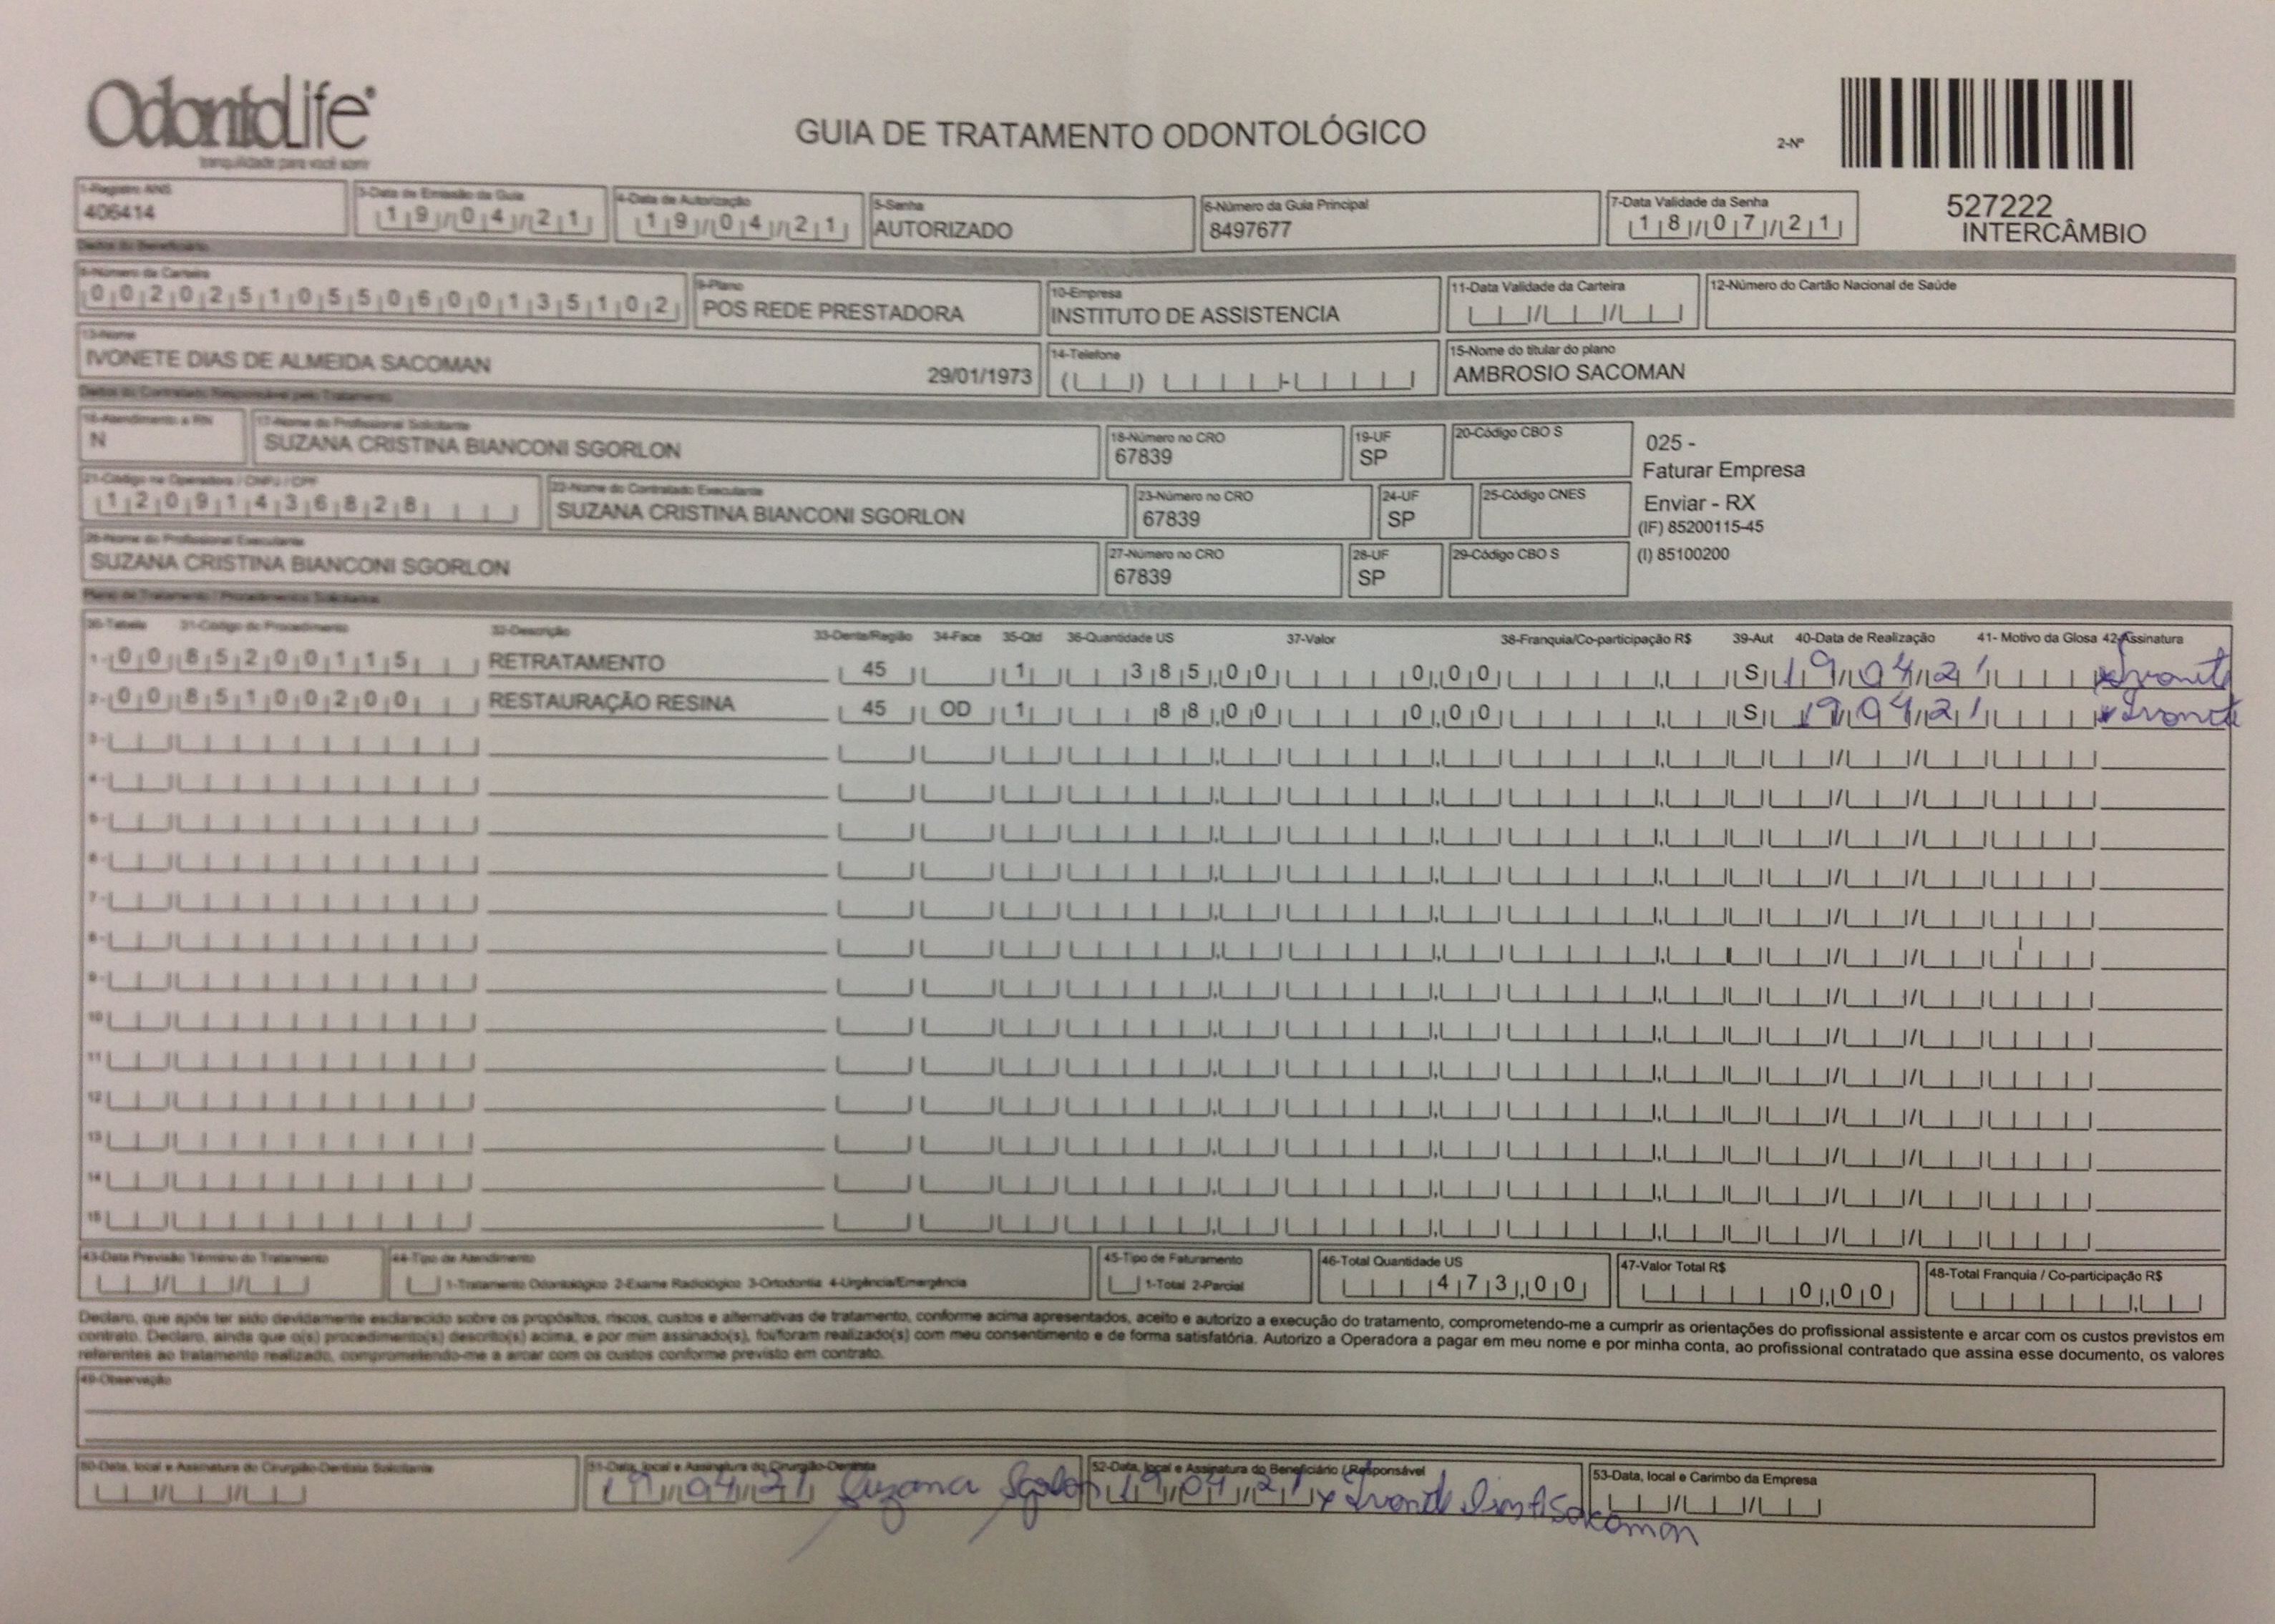 OdontoLife®
tranquilidade para você sorrir
GUIA DE TRATAMENTO ODONTOLÓGICO
2-Nº
527222
INTERCÂMBIO
1-Registro ANS
406414
3-Data de Emissão da Guia
19/04/21
4-Data de Autorização
19/04/21
5-Senha
AUTORIZADO
6-Número da Guia Principal
8497677
7-Data Validade da Senha
18/07/21
Dados do Beneficiário
8-Número da Carteira
00202510550600135102
9-Plano
POS REDE PRESTADORA
10-Empresa
INSTITUTO DE ASSISTENCIA
11-Data Validade da Carteira
12-Número do Cartão Nacional de Saúde
13-Nome
IVONETE DIAS DE ALMEIDA SACOMAN 29/01/1973
14-Telefone
15-Nome do titular do plano
AMBROSIO SACOMAN
Dados do Contratado Responsável pelo Tratamento
16-Atendimento a RN
N
17-Nome do Profissional Solicitante
SUZANA CRISTINA BIANCONI SGORLON
18-Número no CRO
67839
19-UF
SP
20-Código CBO S
025 -
Faturar Empresa
Enviar - RX
(IF) 85200115-45
(I) 85100200
21-Código na Operadora / CNPJ / CPF
12091436828
22-Nome do Contratado Executante
SUZANA CRISTINA BIANCONI SGORLON
23-Número no CRO
67839
24-UF
SP
25-Código CNES
26-Nome do Profissional Executante
SUZANA CRISTINA BIANCONI SGORLON
27-Número no CRO
67839
28-UF
SP
29-Código CBO S
Plano de Tratamento / Procedimentos Solicitados
30-Tabela 31-Código do Procedimento 32-Descrição 33-Dente/Região 34-Face 35-Qtd 36-Quantidade US 37-Valor 38-Franquia/Co-participação R$ 39-Aut 40-Data de Realização 41- Motivo da Glosa 42-Assinatura
1- 00 85200115 RETRATAMENTO 45 1 385,00 0,00 S 19/04/21 x Ivonete
2- 00 85100200 RESTAURAÇÃO RESINA 45 OD 1 88,00 0,00 S 19/04/21 x Ivonete
3-
4-
5-
6-
7-
8-
9-
10
11
12
13
14
15
43-Data Previsão Término do Tratamento
44-Tipo de Atendimento
1-Tratamento Odontológico 2-Exame Radiológico 3-Ortodontia 4-Urgência/Emergência
45-Tipo de Faturamento
1-Total 2-Parcial
46-Total Quantidade US
473,00
47-Valor Total R$
0,00
48-Total Franquia / Co-participação R$
Declaro, que após ter sido devidamente esclarecido sobre os propósitos, riscos, custos e alternativas de tratamento, conforme acima apresentados, aceito e autorizo a execução do tratamento, comprometendo-me a cumprir as orientações do profissional assistente e arcar com os custos previstos em
contrato. Declaro, ainda que o(s) procedimento(s) descrito(s) acima, e por mim assinado(s), foi/foram realizado(s) com meu consentimento e de forma satisfatória. Autorizo a Operadora a pagar em meu nome e por minha conta, ao profissional contratado que assina esse documento, os valores
referentes ao tratamento realizado, comprometendo-me a arcar com os custos conforme previsto em contrato.
49-Observação
50-Data, local e Assinatura do Cirurgião-Dentista Solicitante
51-Data, local e Assinatura do Cirurgião-Dentista
19/04/21 Suzana Sgorlon
52-Data, local e Assinatura do Beneficiário / Responsável
19/04/21 x Ivonete Dias A Sacoman
53-Data, local e Carimbo da Empresa